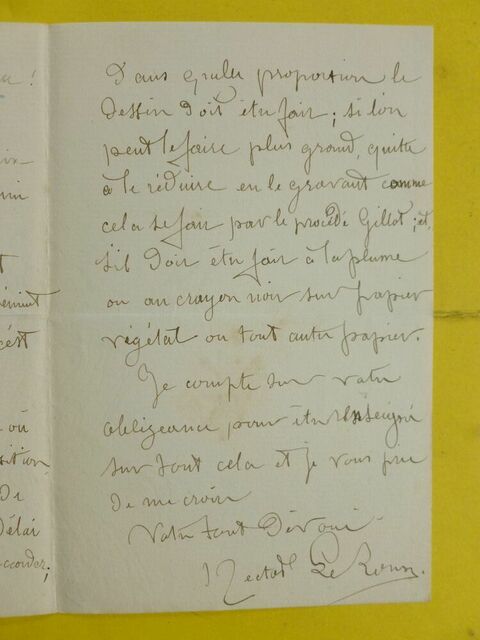 Dans quelle proportion le
dessin doit être fait ; si l'on
peut le faire plus grand, quitte
à le réduire en le gravant comme
cela se fait par le procédé Gillot ; et,
s'il doit être fait à la plume
ou au crayon noir sur papier
végétal ou tout autre papier.
Je compte sur votre
obligeance pour être renseigné
sur tout cela et je vous prie
de me croire
Votre tout dévoué
Hector Le Roux.
où
sition
De
Délai
ccorder ;